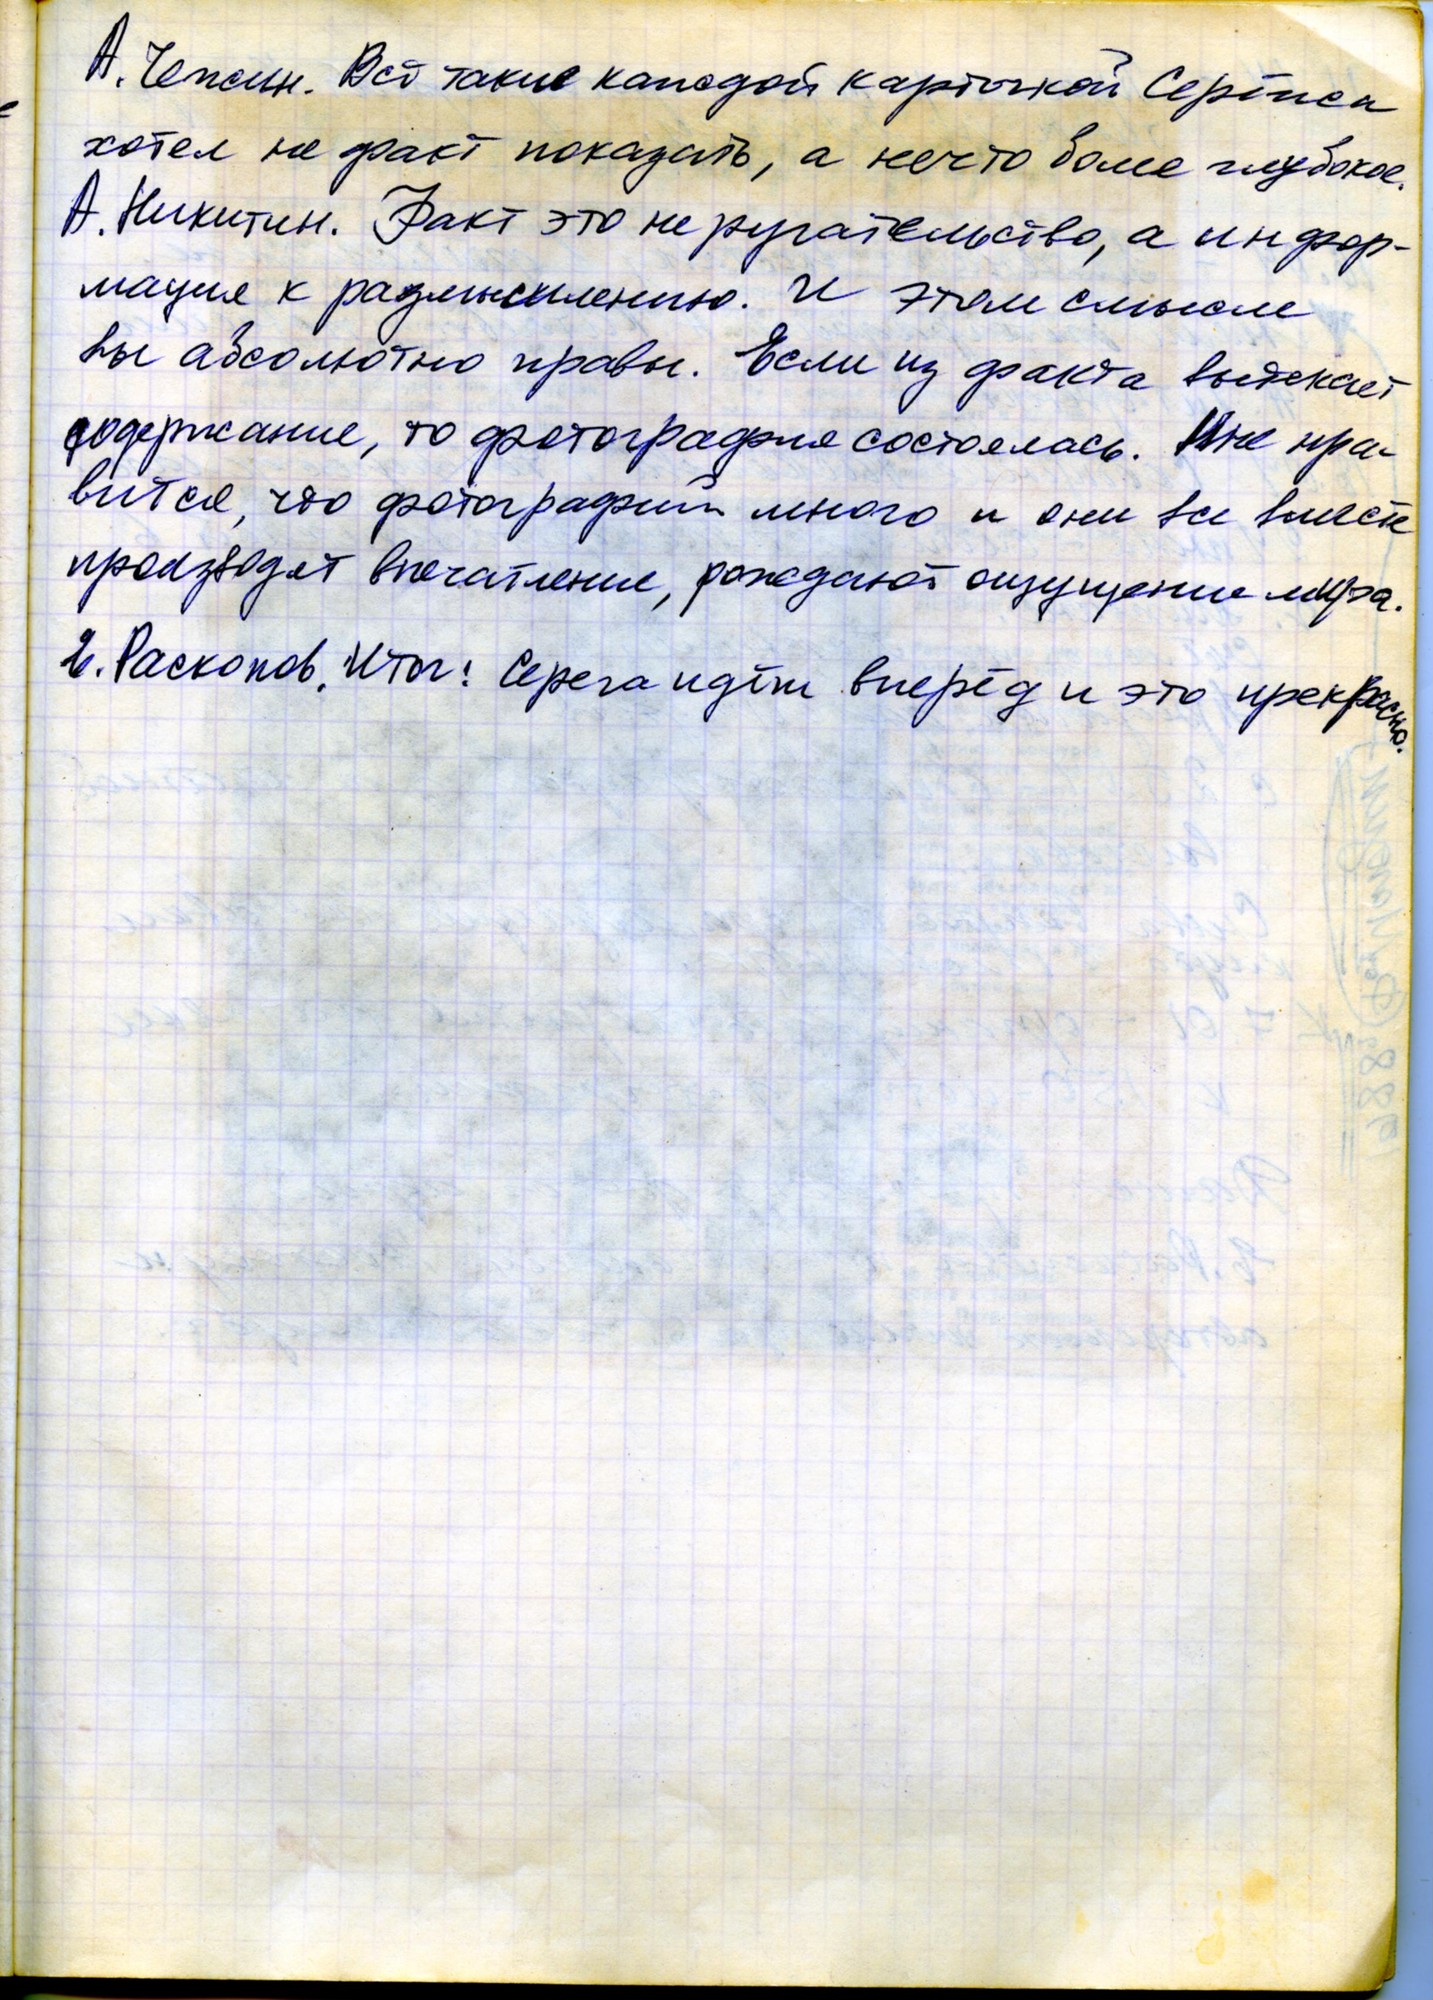 А. Чепсин. Всё такие каждой карточкой Серёжа
хотел не факт показать, а нечто более глубокое.
А. Никитин. Факт это не ругательство, а инфор-
мация к размышлению. И этом смысле
вы абсолютно правы. Если из факта вытекает
содержание, то фотография состоялась. Мне нра-
вится, что фотографий много и они все вместе
производят впечатление, рождают ощущение мира.
Раскопов. Итог: Серёга идёт вперёд и это прекрасно.